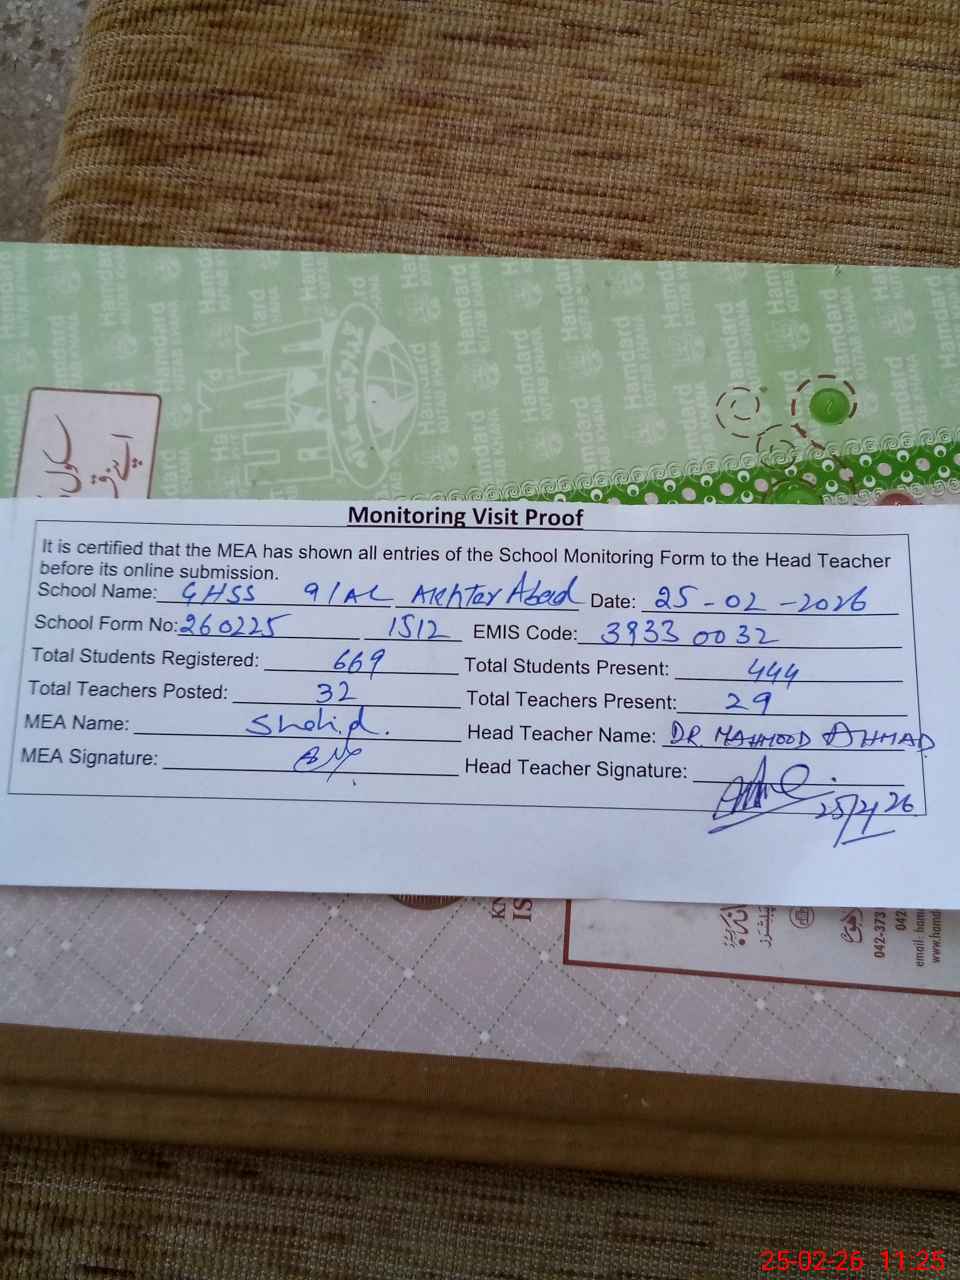 Hamdard
KUTAB KHANA
سکول
Monitoring Visit Proof
It is certified that the MEA has shown all entries of the School Monitoring Form to the Head Teacher
before its online submission.
School Name: GHSS 9/AL Akhter Abad Date: 25-02-2026
School Form No: 260225 1512 EMIS Code: 39330032
Total Students Registered: 669 Total Students Present: 444
Total Teachers Posted: 32 Total Teachers Present: 29
MEA Name: Shahid. Head Teacher Name: DR. MAHMOOD AHMAD
MEA Signature: Head Teacher Signature:
25/2/26
KN
IS
042-373
042
email: ham
www.hamd
25-02-26 11:25